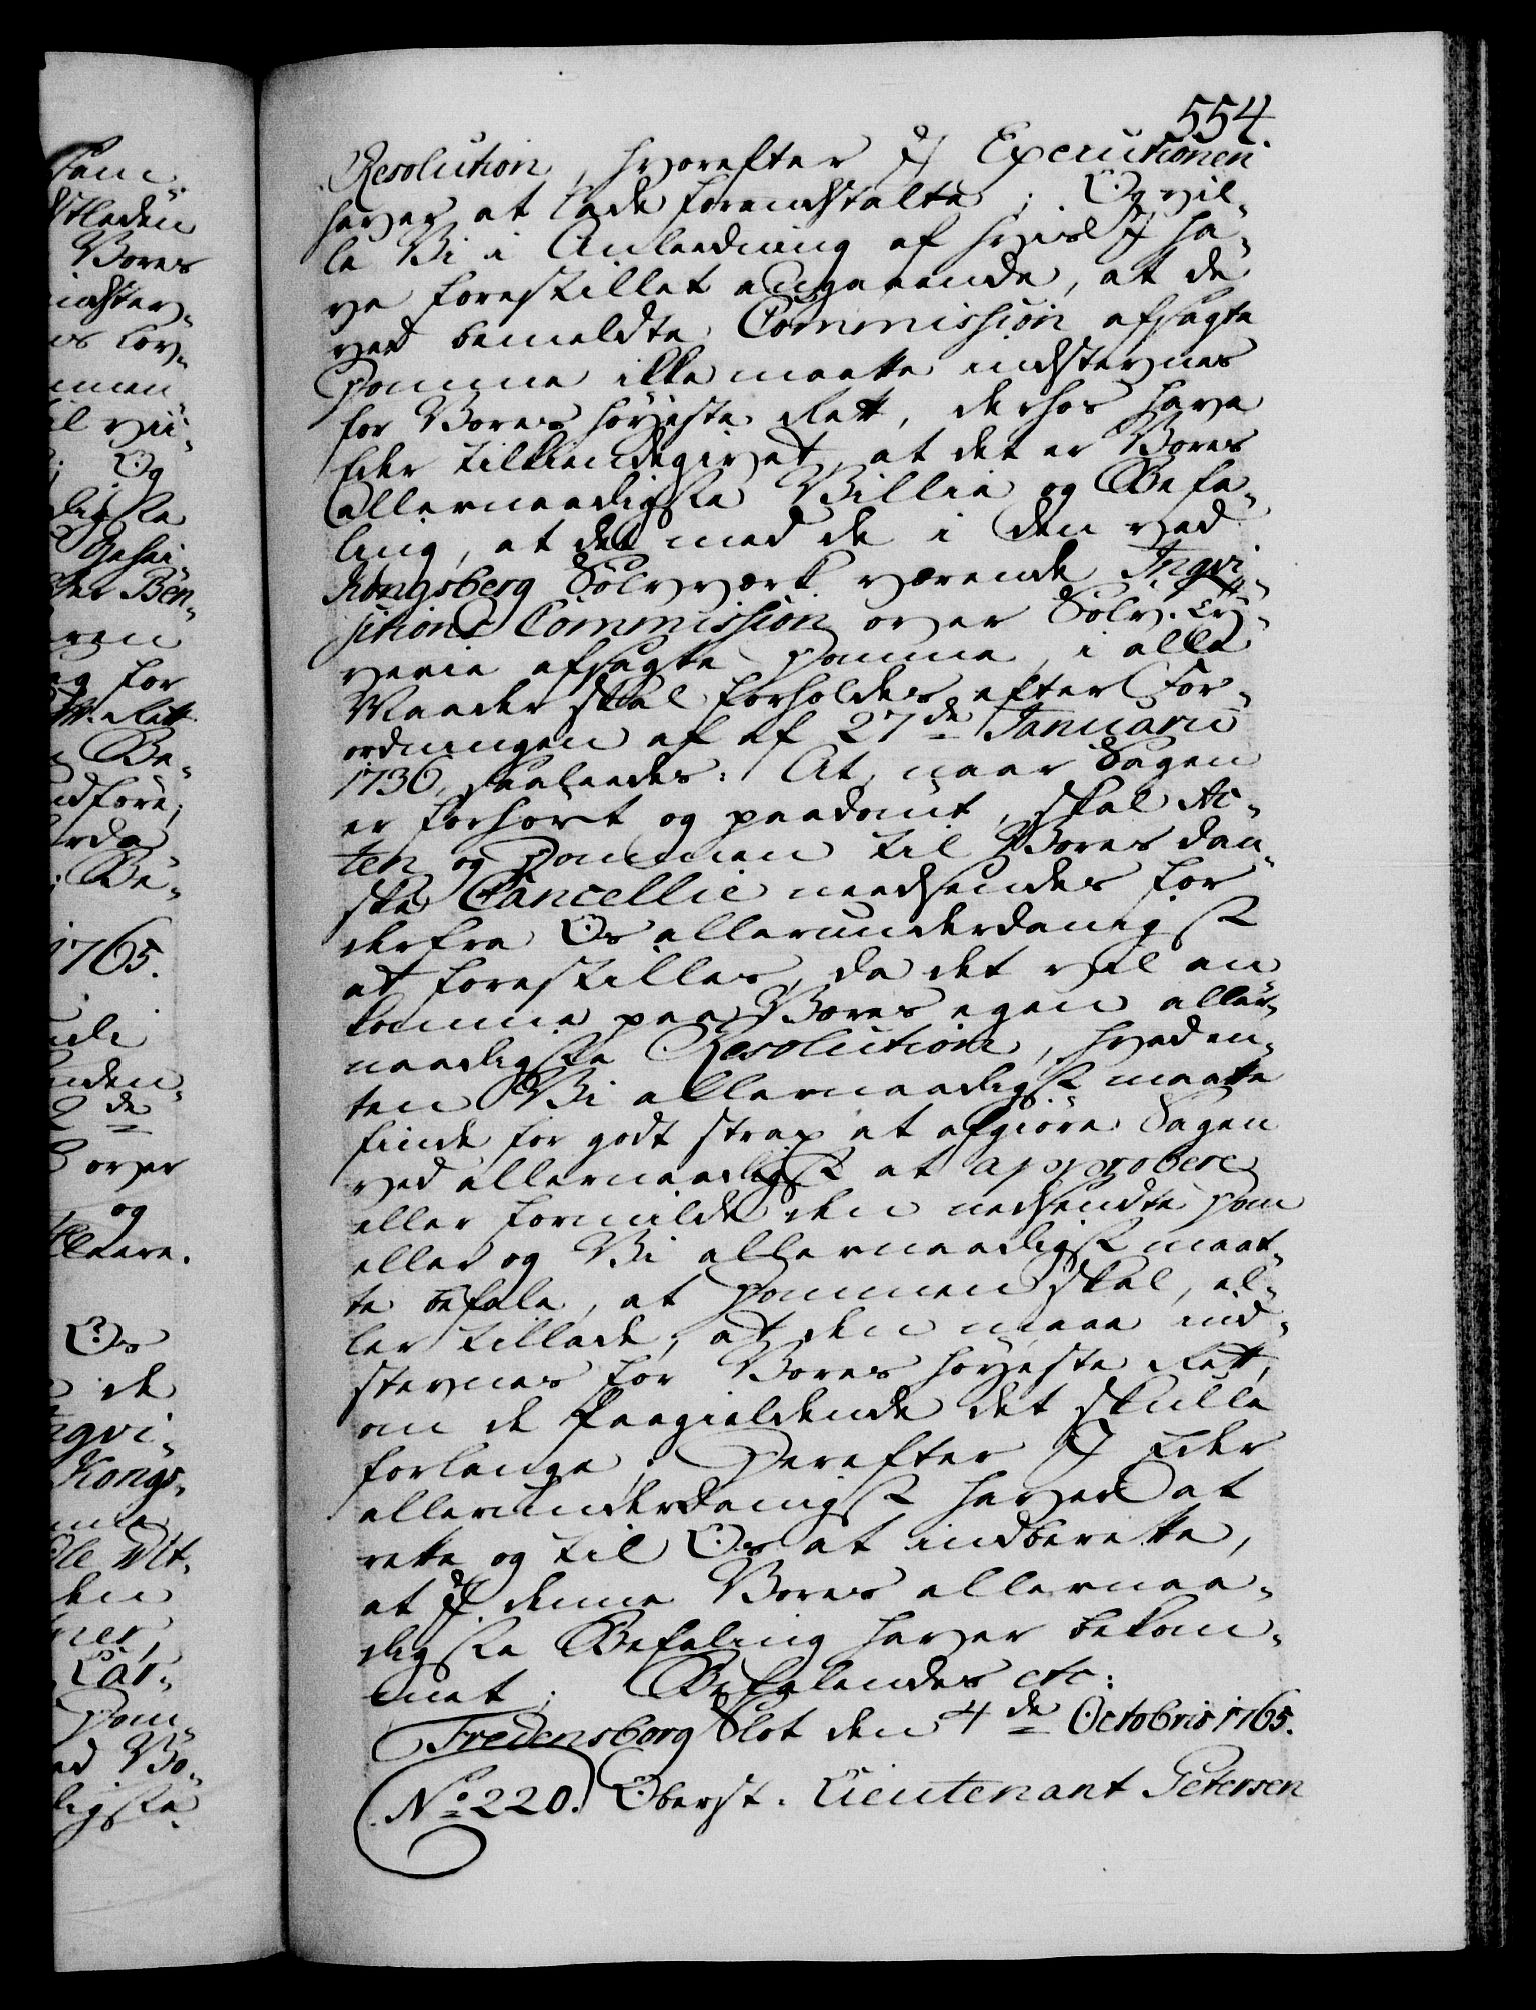 554.
Resolution, hvorefter I Executionen
haver at lade foranstalte; Og vil-
le Vi i Anledning af hvis I ha-
ve forestillet angaaende, at de
ved bemeldte Commission afsagte
Domme ikke maatte indstevnes
for Vores Høyeste Rett, derhos have
Eder tilkiendegivet, at det er Vores
allernaadigste Villie og Befa-
ling, at det med de i den ved
Kongsberg Sølvverk værende Inqvi-
sitions Commission over Sølv-Ty-
verie afsagte Domme, i alle
Maader skal forholdes efter For-
ordningen af af 27de Januarii
1736, saaledes: At, naar Sagen
er forhørt og paadømt, skal Ac-
ten og Dommen til Vores dan-
ske Cancellie needsendes for
derfra Os allerunderdanigst
at forestilles, da det vil an
komme paa Vores egen aller-
naadigste Resolution, hvaden-
ten Vi allernaadigst maatte
finde for godt strax at afgiøre Sagen
ved allernaadigst at approbere
eller formilde den nedsendte Dom
eller og Vi allernaadigst maat-
te befale, at Dommen skal, el-
ler tillade, at den maae ind-
stevnes for Vores Høyeste Rett,
om de Paagieldende det skulle
forlange; Derefter I Eder
allerunderdanigst haver at
rette og til Os at indberette,
at I denne Vores allernaa-
digste Befaling haver bekom-
met. Befalendes etc:
Fredensborg Slot den 4de Octobris 1765.
No 220. Oberst-Lieutenant Petersen